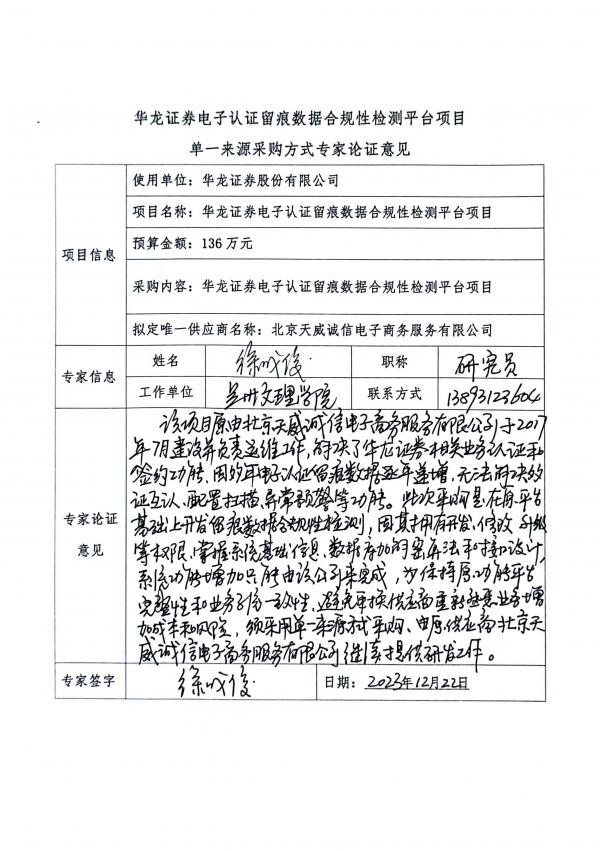 华龙证券电子认证留痕数据合规性检测平台项目
单一来源采购方式专家论证意见
项目信息
使用单位：华龙证券股份有限公司
项目名称：华龙证券电子认证留痕数据合规性检测平台项目
预算金额：136 万元
采购内容：华龙证券电子认证留痕数据合规性检测平台项目
拟定唯一供应商名称：北京天威诚信电子商务服务有限公司
专家信息
姓名 徐成俊 职称 研究员
工作单位 兰州文理学院 联系方式 13893123604
专家论证
意见
该项目原由北京天威诚信电子商务服务有限公司于2017
年7月建设并负责运维工作，解决了华龙证券相关业务认证和
签约功能，因多年电子认证留痕数据逐年递增，无法解决效
证互认、配置扫描、异常预警等功能。此次采购是在原平台
基础上开发留痕数据合规性检测，因其拥有开发、修改、升级
等权限，掌握系统基础信息、数据库加解密算法和接口设计，
系统功能增加只能由该公司来完成，为保持原功能平台
完整性和业务系统一致性，避免更换供应商重新部署业务增
加成本和风险，须采用单一来源方式采购、由原供应商北京天
威诚信电子商务服务有限公司继续提供研发工作。
专家签字 徐成俊 日期：2023年12月22日